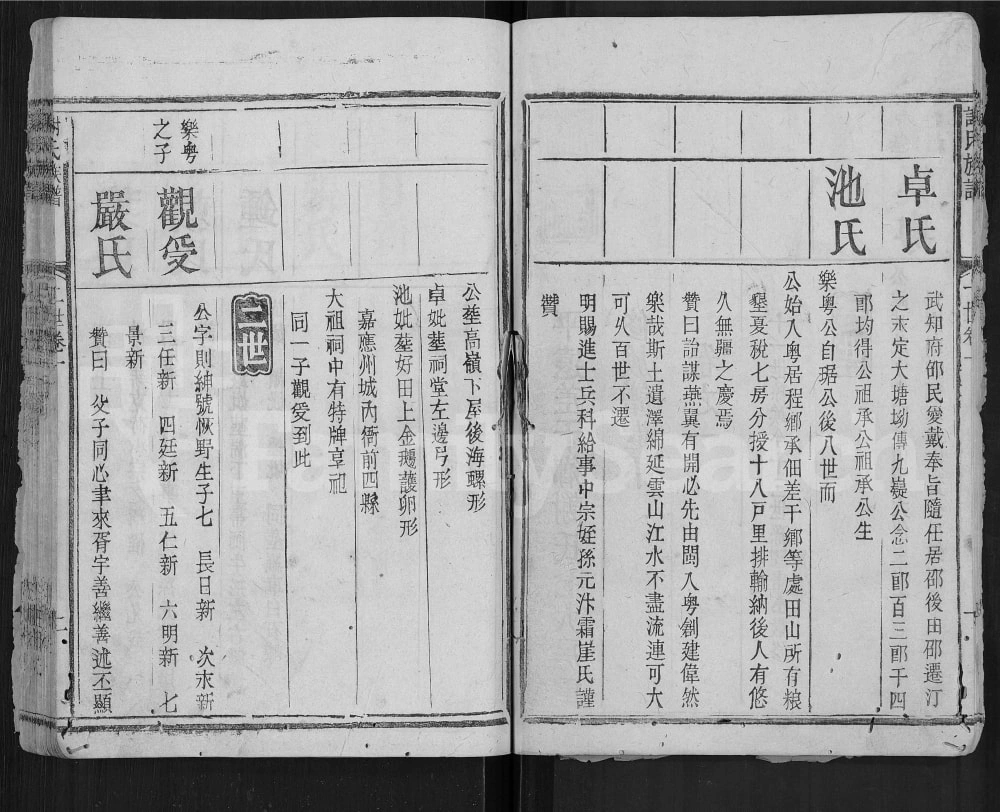 卓氏
池氏
武知府邵民愛戴奉旨隨任居邵後田邵遷汀
之末定大塘坳傳九嶷公念二郎百三郎千四
郎均得公祖承公祖承公生
樂粤公自琚公後八世而
公始入粤居程鄉承佃差干鄉等處田山所有粮
墾憂稅七房分授十八戸里排輸納後人有悠
久無疆之慶焉
贊曰詒謀燕翼有開必先由閩入粤創建偉然
樂哉斯土遺澤綿延雲山江水不盡流連可大
可久百世不遷
明賜進士兵科給事中宗姪孫元汴霜崖氏謹
贊
公塟高嶺下屋後海螺形
卓妣塟祠堂左邊弓形
池妣塟好田上金鵝護卵形
嘉應州城內衝前四縣
大祖祠中有特牌享祀
同一子觀受到此
二世
樂粤
之子
觀受
嚴氏
公字則紳號恢野生子七 長日新 次永新
三任新 四廷新 五仁新 六明新 七
景新
贊曰 父子同心聿來胥宇善繼善述丕顯